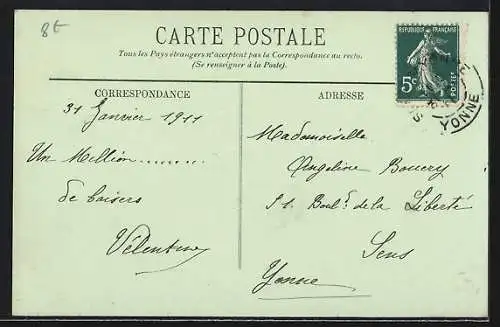 8€
CARTE POSTALE
Tous les Pays étrangers n'acceptent pas la Correspondance au recto.
(Se renseigner à la Poste).
RÉPUBLIQUE FRANÇAISE
5c
POSTES
YONNE
CORRESPONDANCE
31 Janvier 1911
Un Million..........
de baisers
ADRESSE
Mademoiselle
Angeline
51 Boul.d de la Liberté
Sens
Yonne